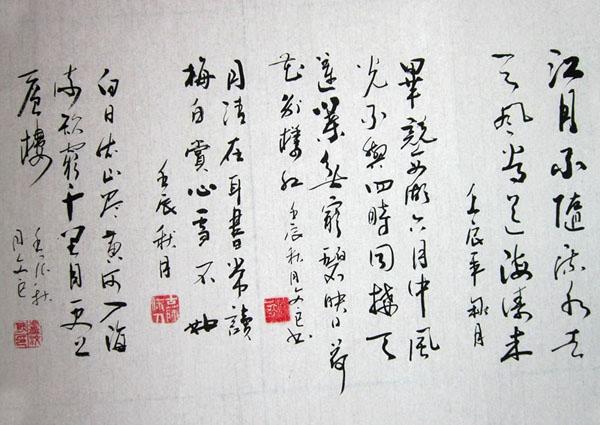 江月不隨流水去
天風送海濤来
壬辰年秋月
畢竟西湖六月中風
光不與四時同接天
蓮葉無窮碧映日荷
花别樣红 壬辰秋月文已书
月清在耳書常讀
梅白賞心雪不如
壬辰秋月
白日依山尽黄河入海
流欲窮千里目更上
一層樓
壬辰秋
月文已